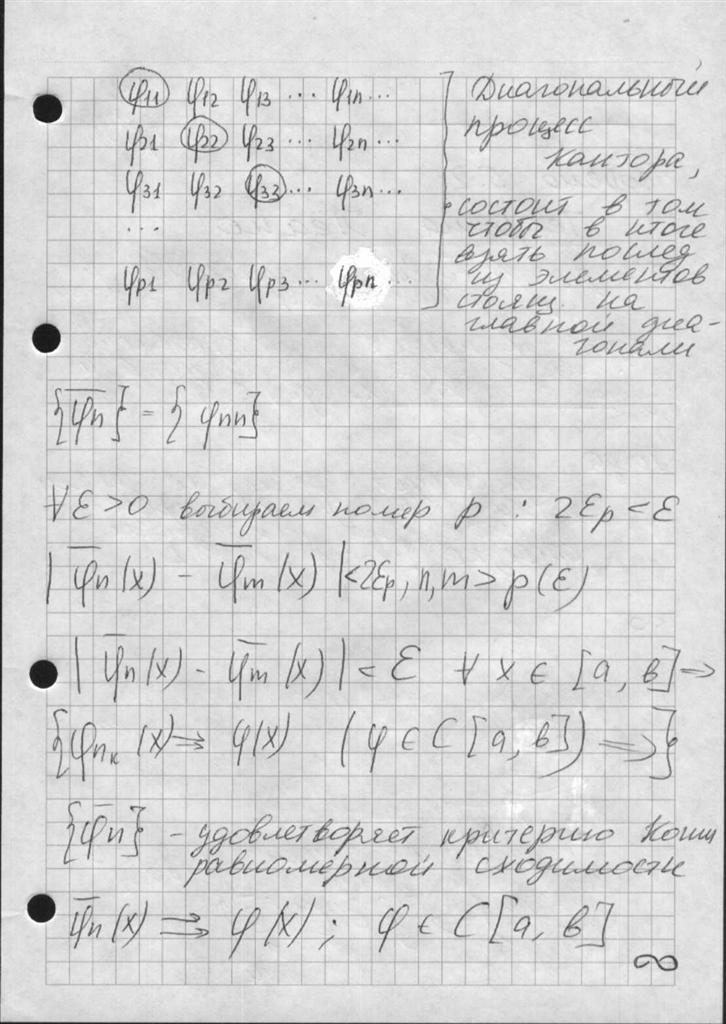 φ11 φ12 φ13 ... φ1n ...
φ21 φ22 φ23 ... φ2n ...
φ31 φ32 φ33 ... φ3n ...
...
φp1 φp2 φp3 ... φpn ...
Диагональный
процесс
Кантора,
состоит в том
чтобы в итоге
взять послед
из элементов
стоящ. на
главной диа-
гонали
{φ̅n} = {φnn}
∀ε>0 выбираем номер p : 2εp < ε
|φ̅n(x) - φ̅m(x)| < 2εp, n,m > p(ε)
|φ̅n(x) - φ̅m(x)| < ε ∀ x ∈ [a, в] ⇒
{φnк(x) ⇉ φ(x) (φ ∈ C[a, в]) ⇒}
{φ̅n} - удовлетворяет критерию Коши
равномерной сходимости
φ̅n(x) ⇉ φ(x); φ ∈ C[a, в]
∞